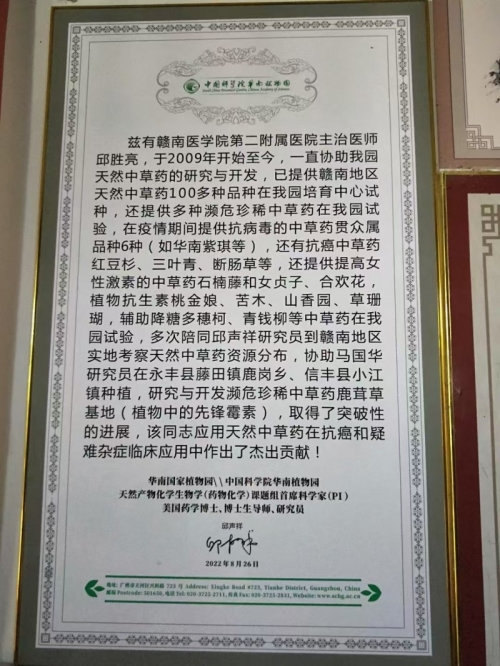 中国科学院华南植物园
South China Botanical Garden, Chinese Academy of Sciences
兹有赣南医学院第二附属医院主治医师
邱胜亮，于2009年开始至今，一直协助我园
天然中草药的研究与开发，已提供赣南地区
天然中草药100多种品种在我园培育中心试
种，还提供多种濒危珍稀中草药在我园试
验，在疫情期间提供抗病毒的中草药贯众属
品种6种（如华南紫琪等），还有抗癌中草药
红豆杉、三叶青、断肠草等，还提供提高女
性激素的中草药石楠藤和女贞子、合欢花，
植物抗生素桃金娘、苦木、山香园、草珊
瑚，辅助降糖多穗柯、青钱柳等中草药在我
园试验，多次陪同邱声祥研究员到赣南地区
实地考察天然中草药资源分布，协助马国华
研究员在永丰县藤田镇鹿岗乡、信丰县小江
镇种植，研究与开发濒危珍稀中草药鹿茸草
基地（植物中的先锋霉素），取得了突破性
的进展，该同志应用天然中草药在抗癌和疑
难杂症临床应用中作出了杰出贡献！
华南国家植物园\\中国科学院华南植物园
天然产物化学生物学(药物化学)课题组首席科学家(PI)
美国药学博士、博士生导师、研究员
邱声祥
2022年8月26日
地址: 广州市天河区兴科路 723 号 Address: Xingke Road #723, Tianhe District, Guangzhou, China
邮编 Postcode: 501650, 电话 Tel: 020-3725-2711, 传真 Fax: 020-3725-2831, Website: www.scbg.ac.cn